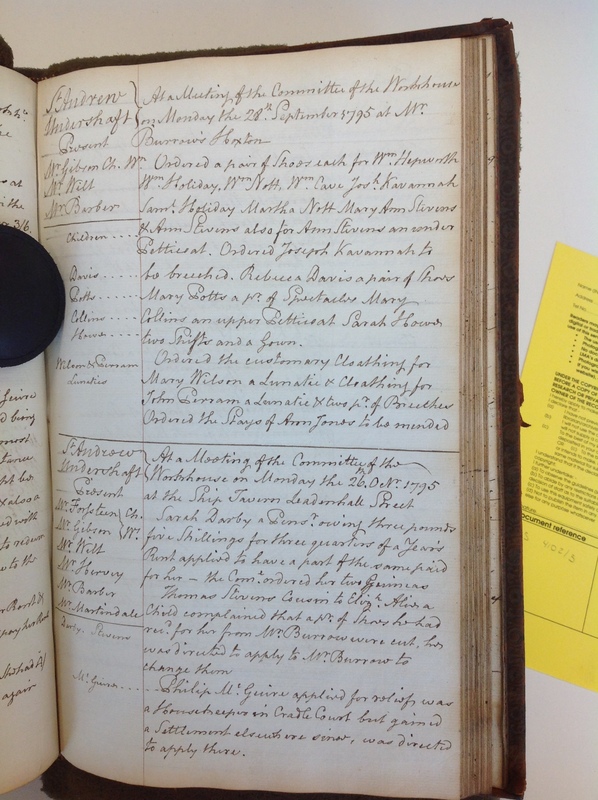 St. Andrew
Undershaft
Present
Mr. Gibson Ch. Wn.
Mr. Wilt
Mr. Barber
At a Meeting of the Committee of the Workhouse
on Monday the 28th. September 1795 at Mr.
Burrow's Hoxton
Ordered a pair of Shoes each for Wm. Hepworth
Wm. Holiday, Wm. Nott, Wm. Cave Josh. Kavannah
Saml. Holiday Martha Nott Mary Ann Stevens
Children ....
& Ann Stevens also for Ann Stevens an under
Petticoat. Ordered Joseph Kavannah to
Davis ....
be breeched. Rebecca Davis a pair of Shoes
Potts ....
Mary Potts a pr. of Spectacles Mary
Collins ....
Collins an upper Petticoat Sarah Howes
Howes ....
two Shifts and a Gown.
Wilson & Perram
Lunatics
Ordered the customary Cloathing for
Mary Wilson a Lunatic & Cloathing for
John Perram a Lunatic & two pr. of Breeches
Ordered the Stays of Ann Jones to be mended
St. Andrew
Undershaft
Present
Mr. Forsteen Ch.
Mr. Gibson Wn.
Mr. Wilt
Mr. Hervey
Mr. Barber
Mr. Martindale
At a Meeting of the Committee of the
Workhouse on Monday the 26. Or. 1795
at the Ship Tavern Leadenhall Street
Sarah Darby a Pensr. owing three pounds
five Shillings for three quarters of a Year's
Rent applied to have a part of the same paid
for her – the Come. ordered her two Guineas
Thomas Stevens Cousin to Elizh. Alis a
Darby, Stevens
Child complained that a pr. of Shoes he had
recd. for her from Mr. Burrow were cut, he
was directed to apply to Mr. Burrow to
change them
Mc. Guire ....
Philip Mc. Guire applied for relief, was
a Housekeeper in Cradle Court but gained
a Settlement elsewhere since, was directed
to apply there.
ocument reference